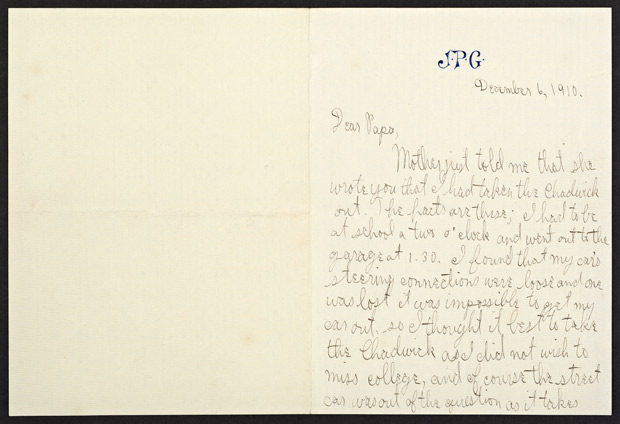 J·P·G·
December 6, 1910.
Dear Papa,
Mother just told me that she
wrote you that I had taken the Chadwick
out. The facts are these; I had to be
at school a two o'clock and went out to the
garage at 1.30. I found that my car's
steering connections were loose and one
was lost it was impossible to get my
car out. so I thought it best to take
the Chadwick as I did not wish to
miss college, and of course the street
car was out of the question as it takes